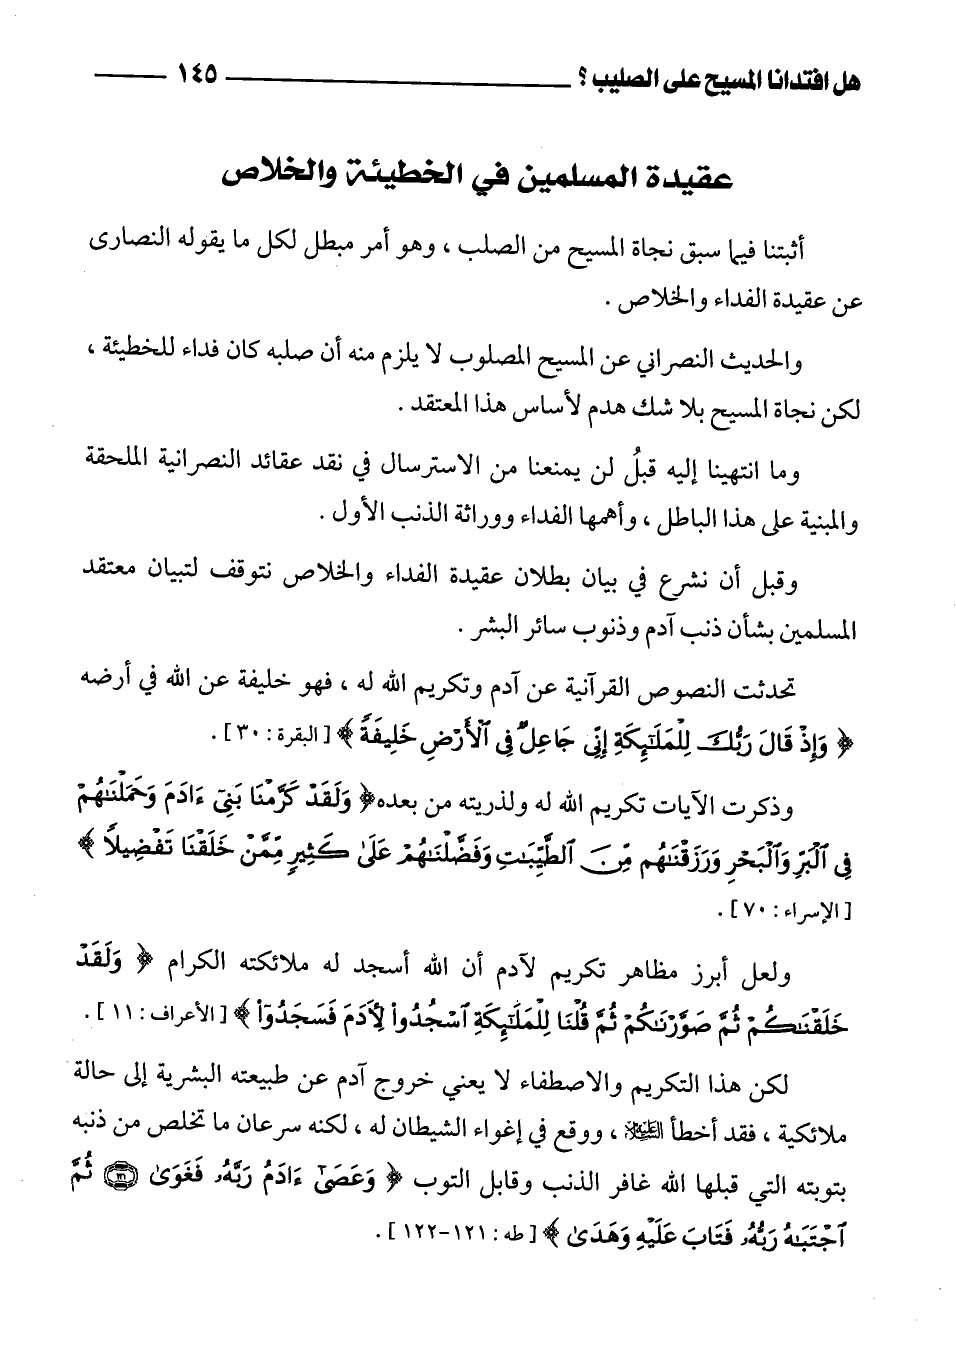 هل افتدانا المسيح على الصليب ؟ ١٤٥
عقيدة المسلمين في الخطيئة والخلاص
أثبتنا فيما سبق نجاة المسيح من الصلب ، وهو أمر مبطل لكل ما يقوله النصارى
عن عقيدة الفداء والخلاص .
والحديث النصراني عن المسيح المصلوب لا يلزم منه أن صلبه كان فداء للخطيئة ،
لكن نجاة المسيح بلا شك هدم لأساس هذا المعتقد .
وما انتهينا إليه قبلُ لن يمنعنا من الاسترسال في نقد عقائد النصرانية الملحقة
والمبنية على هذا الباطل ، وأهمها الفداء ووراثة الذنب الأول .
وقبل أن نشرع في بيان بطلان عقيدة الفداء والخلاص نتوقف لتبيان معتقد
المسلمين بشأن ذنب آدم وذنوب سائر البشر .
تحدثت النصوص القرآنية عن آدم وتكريم الله له ، فهو خليفة عن الله في أرضه
﴿ وَإِذْ قَالَ رَبُّكَ لِلْمَلَٰٓئِكَةِ إِنِّى جَاعِلٌ فِى ٱلْأَرْضِ خَلِيفَةً ﴾ [ البقرة : ٣٠ ] .
وذكرت الآيات تكريم الله له ولذريته من بعده ﴿ وَلَقَدْ كَرَّمْنَا بَنِىٓ ءَادَمَ وَحَمَلْنَٰهُمْ
فِى ٱلْبَرِّ وَٱلْبَحْرِ وَرَزَقْنَٰهُم مِّنَ ٱلطَّيِّبَٰتِ وَفَضَّلْنَٰهُمْ عَلَىٰ كَثِيرٍ مِّمَّنْ خَلَقْنَا تَفْضِيلًا ﴾
[ الإسراء : ٧٠ ] .
ولعل أبرز مظاهر تكريم لآدم أن الله أسجد له ملائكته الكرام ﴿ وَلَقَدْ
خَلَقْنَٰكُمْ ثُمَّ صَوَّرْنَٰكُمْ ثُمَّ قُلْنَا لِلْمَلَٰٓئِكَةِ ٱسْجُدُوا۟ لِأٓدَمَ فَسَجَدُوٓا۟ ﴾ [ الأعراف : ١١ ] .
لكن هذا التكريم والاصطفاء لا يعني خروج آدم عن طبيعته البشرية إلى حالة
ملائكية ، فقد أخطأ عليه السلام ، ووقع في إغواء الشيطان له ، لكنه سرعان ما تخلص من ذنبه
بتوبته التي قبلها الله غافر الذنب وقابل التوب ﴿ وَعَصَىٰٓ ءَادَمُ رَبَّهُۥ فَغَوَىٰ ١٢١ ثُمَّ
ٱجْتَبَٰهُ رَبُّهُۥ فَتَابَ عَلَيْهِ وَهَدَىٰ ﴾ [ طه : ١٢١-١٢٢ ] .